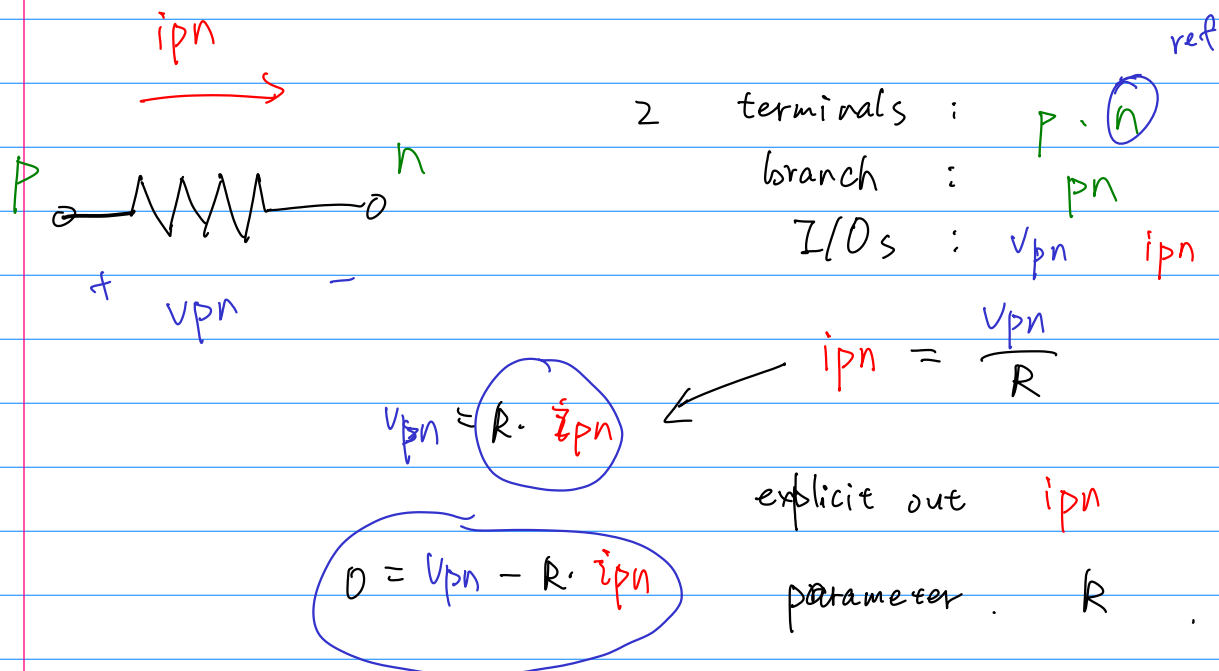 ipn
ref
2 terminals : p . n
p n
branch : pn
I/Os : vpn ipn
+ vpn -
ipn = vpn / R
vpn = R. ipn
explicit out ipn
0 = vpn - R. ipn
parameter . R .